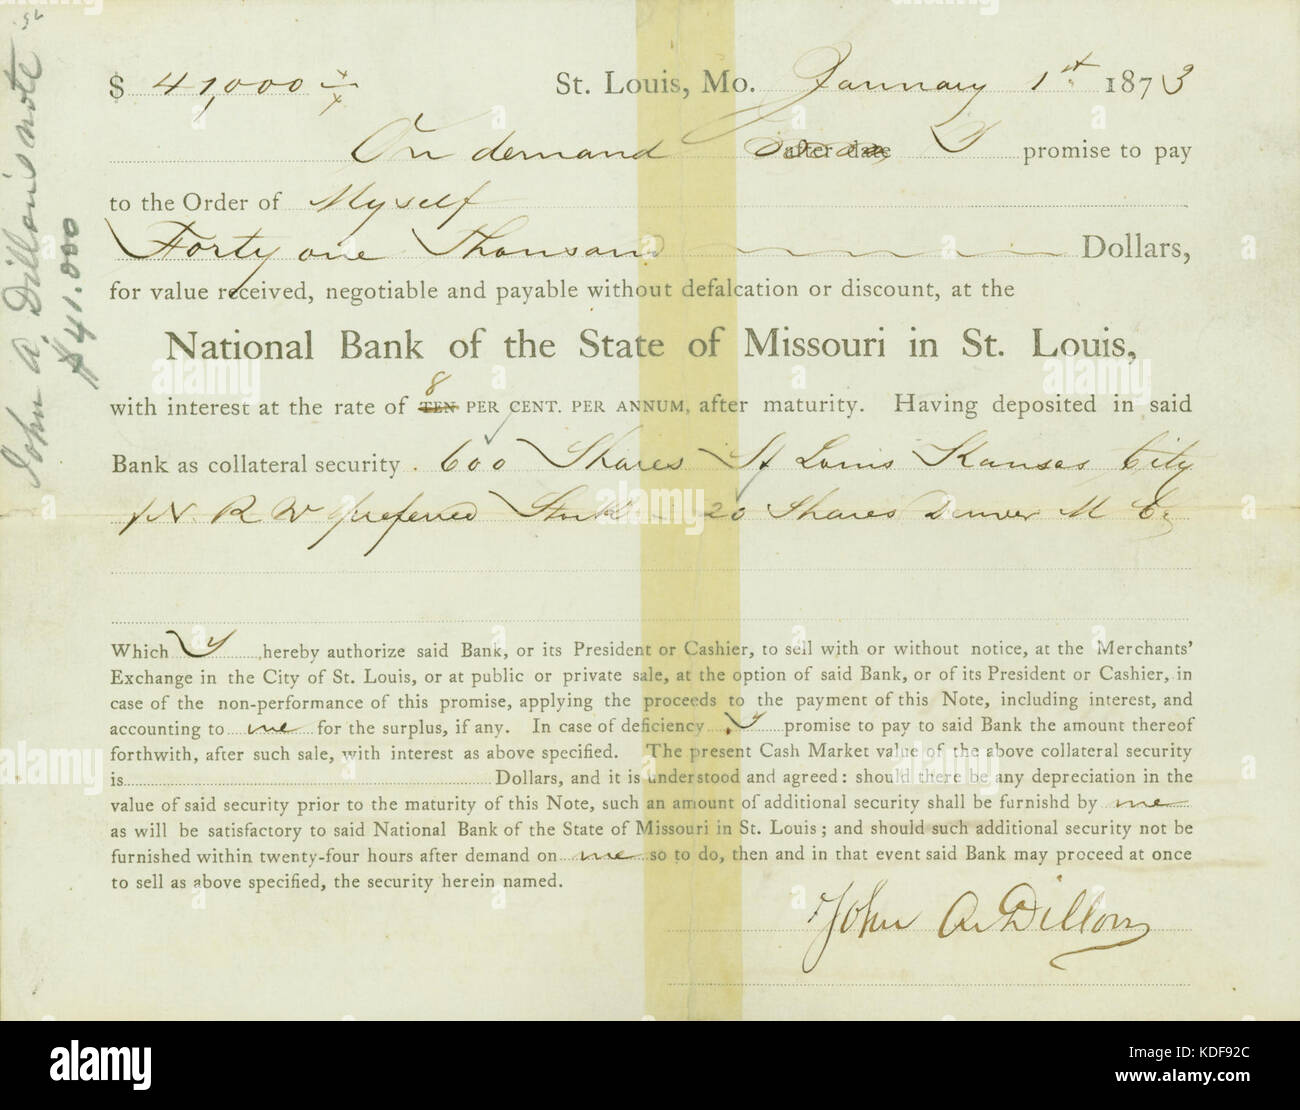 $ 41,000 St. Louis, Mo. January 1st 1873
On demand after date I promise to pay
to the Order of Myself
Forty one Thousand Dollars,
for value received, negotiable and payable without defalcation or discount, at the
National Bank of the State of Missouri in St. Louis,
8
with interest at the rate of TEN PER CENT. PER ANNUM, after maturity. Having deposited in said
Bank as collateral security. 600 Shares St Louis Kansas City
& N. R W preferred Stock - 20 Shares Denver M Co
Which I hereby authorize said Bank, or its President or Cashier, to sell with or without notice, at the Merchants'
Exchange in the City of St. Louis, or at public or private sale, at the option of said Bank, or of its President or Cashier, in
case of the non-performance of this promise, applying the proceeds to the payment of this Note, including interest, and
accounting to me for the surplus, if any. In case of deficiency I promise to pay to said Bank the amount thereof
forthwith, after such sale, with interest as above specified. The present Cash Market value of the above collateral security
is Dollars, and it is understood and agreed: should there be any depreciation in the
value of said security prior to the maturity of this Note, such an amount of additional security shall be furnishd by me
as will be satisfactory to said National Bank of the State of Missouri in St. Louis; and should such additional security not be
furnished within twenty-four hours after demand on me so to do, then and in that event said Bank may proceed at once
to sell as above specified, the security herein named.
John A Dillon
John A. Dillon's note
$41.000
alamy
Image ID: KDF92C
www.alamy.com